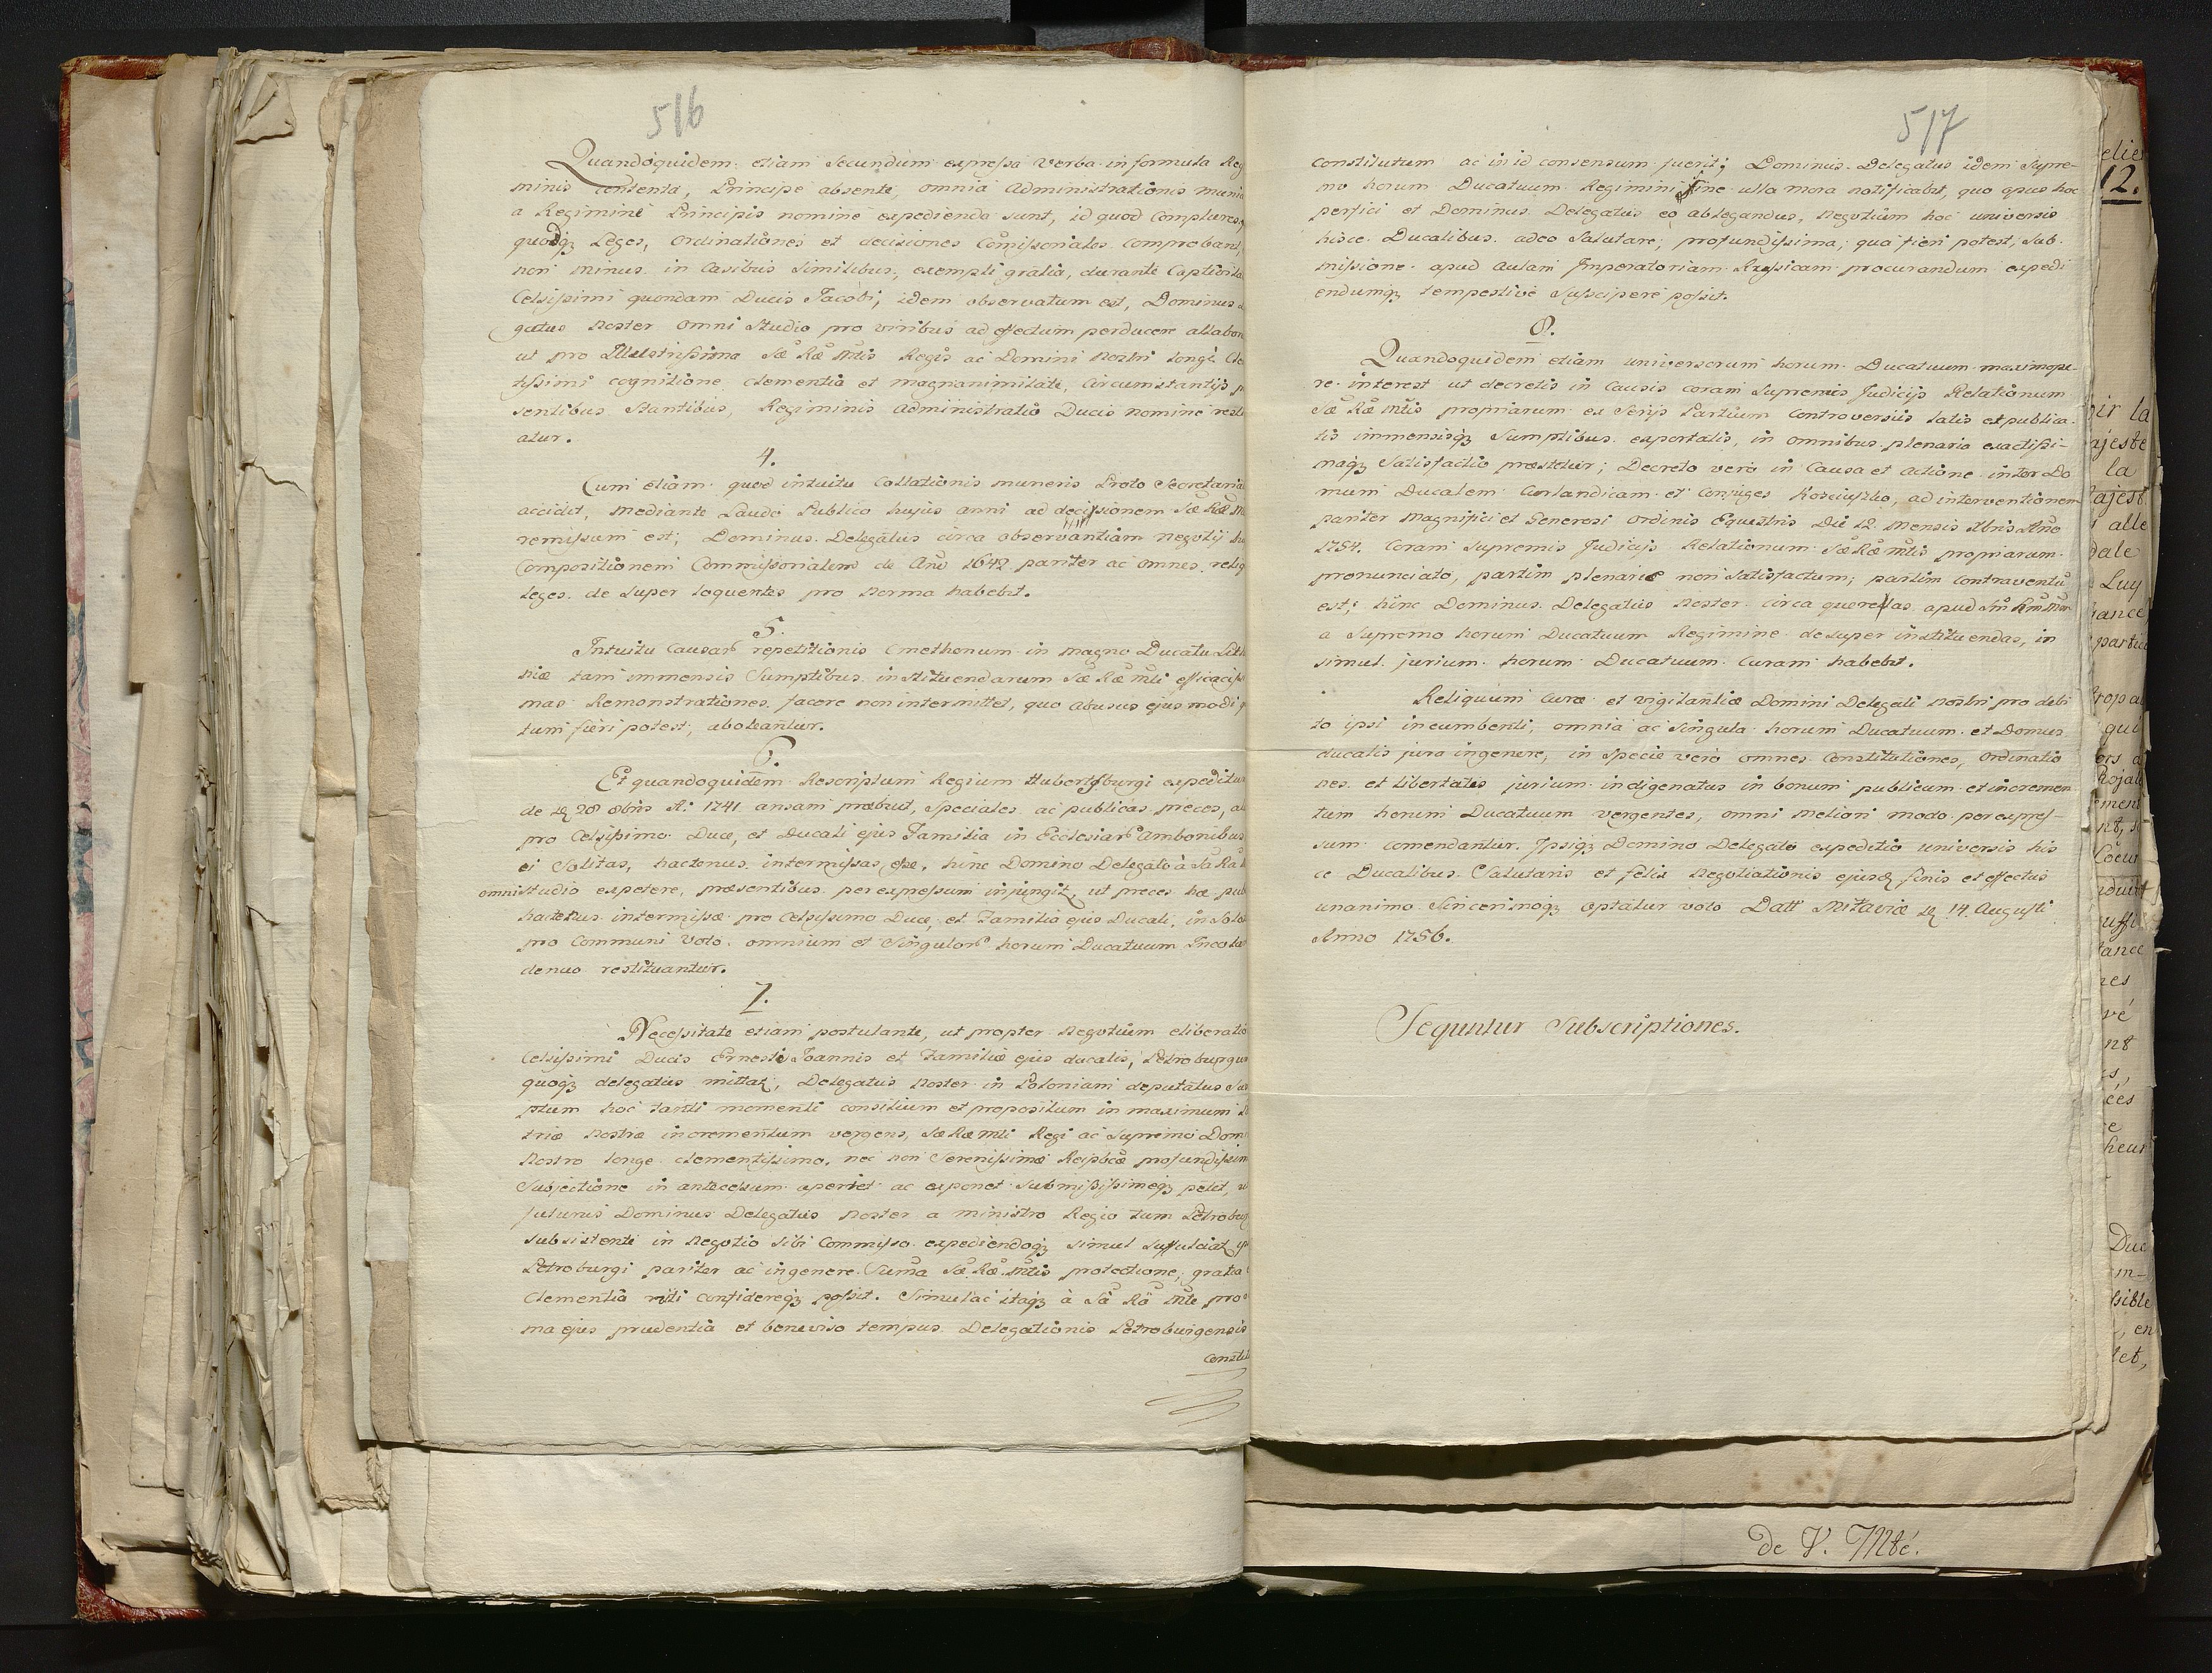 516
Quandoquidem etiam secundum expressa verba in formula Regi
minis contenta, Principe absente, omnia administrationis munia
a Regimine Principis nomine expedienda sunt, id quod complures
quoq3 Leges, ordinationes et decisiones Com̃issoriales comprobant,
non minus in Casibus similibus, exempli gratia, durante Captivita
Celsissimi quondam Ducis Jacobi, idem observatum est, Dominus
gatus noster omni studio pro viribus ad effectum perducere allabor
ut pro Illustrissima Sæ Ræ Mtis Regis ac Domini nostri longe Cle
tissimi cognitione clementia et magnanimitate, circumstantijs p
sentibus stantibus, Regiminis administratio Ducis nomine resti
atur.
4.
Cum etiam quod intuitu Collationis muneris Proto Secretaria
accidit, mediante Laudo Publico hujus anni ad decisionem Sæ Ræ M
remissum est; Dominus Delegatus circa observantiam negotij hu
Compositionem Commissorialem de Año 1642 pariter ac omnes reliq
leges de super loquentes pro norma habebit.
5.
Intuitu Causar repetitionis Cmethonum in magno Ducatu Lith
niæ tam immensis sumptibus instituendarum Sæ Ræ Mti efficacis
mas Remonstrationes facere non intermittet, quo abusus ejus modi q
tum fieri potest, aboleantur.
6.
Et quandoquidem Rescriptum Regium Hubertsburgi expeditum
de d 28 8bris A: 1741 ansam præbuit, speciales ac publicas preces, al
pro Celsissimo Duce, et Ducali ejus Familia in Ecclesiar ambonibus
ei solitas, hactenus intermissas esse, hinc Domino Delegato à Sa Ra
omni studio expetere, præsentibus per expressum injungit, ut preces hæ pub
hactenus intermissæ pro Celsissimo Duce, et Familia ejus Ducali, in sola
pro communi voto omnium et singulor horum Ducatuum Incola
denuo restituantur.
7.
Necessitate etiam postulante, ut propter negotium eliberatio
Celsissimi Ducis Ernesti Joannis et Familiæ ejus ducalis, Petroburgum
quoq3 delegatus mittat, Delegatus noster in Poloniam deputatus
ptum hoc tanti momenti consilium et propositum in maximum
triæ nostræ incrementum vergens, Sæ Ræ Mti Regi ac Supremo Domi
nostro longe clementissimo, nec non Serenissimæ Reipbcæ profundissim
subjectione in antecessum aperiet ac exponet submississimeq3 petet, ut
futurus Dominus Delegatus noster a ministro Regio tum Petroburg
subsistente in negotio sibi commisso expediendoq3 simul suffulciat
Petroburgi pariter ac in genere Sum̃a Sæ Ræ Mtis protectione, gratia
Clementia uti confidereq3 possit. Simulac itaq3 à Sa Ra Mte pro
ma ejus prudentia et bene viso tempus Delegationis Petroburgensis
Constitu
517
constitutum ac in id consensum fuerit; Dominus Delegatus idem Supre-
mo horum Ducatuum Regimini sine ulla mora notificabit, quo opus hoc
perfici et Dominus Delegatus eò ablegandus, negotium hoc universis
hisce Ducalibus adeo salutare, profundissima, qua fieri potest, sub-
missione apud Aulam Imperatoriam Russicam procurandum expedi
endumq3 tempestive suscipere possit.
8.
Quandoquidem etiam universorum horum Ducatuum maximope-
re interest ut decretis in Causis coram supremis Judicijs Relationum
Sæ Ræ Mtis propriarum ex serijs Partium Controversiis latis et publica-
tis immensisq3 sumptibus exportatis, in omnibus plenaria exactissi-
maq3 satisfactio præstetur; Decreto verò in Causa et actione inter Do
mum Ducalem Curlandicam et conjuges Kosciuszko, ad interventionem
pariter Magnifici et Generosi ordinis Equestris Die 12 mensis Xbris Año
1754. coram supremis Judicijs Relationum Sæ Ræ Mtis propriarum
pronunciato, partim plenarie non satisfactum; partim contraventũ
est; hinc Dominus Delegatus noster circa querelas apud Sm̃ Rm̃ Mm̃
a Supremo horum Ducatuum Regimine desuper instituendas, in
simul jurium horum Ducatuum Curam habebit.
Reliquum Curæ et vigilantiæ Domini Delegati nostri pro debi
to ipsi incumbenti, omnia ac singula horum Ducatuum et Domus
ducalis jura in genere, in specie verò omnes Constitutiones, ordinatio
nes et libertates jurium indigenatus in bonum publicum et incremen
tum horum Ducatuum vergentes, omni meliori modo per expres-
sum comendantur. Ipsiq3 Domino Delegato expeditio universis his
ce Ducalibus salutaris et felix negotiationis ejusq3 finis et effectus
unanimo sincerimoq3 optatur voto Datt Mitaviæ d 14 Augusti
Anno 1756.
Sequntur Subscriptiones.
12.
de V. Mté.